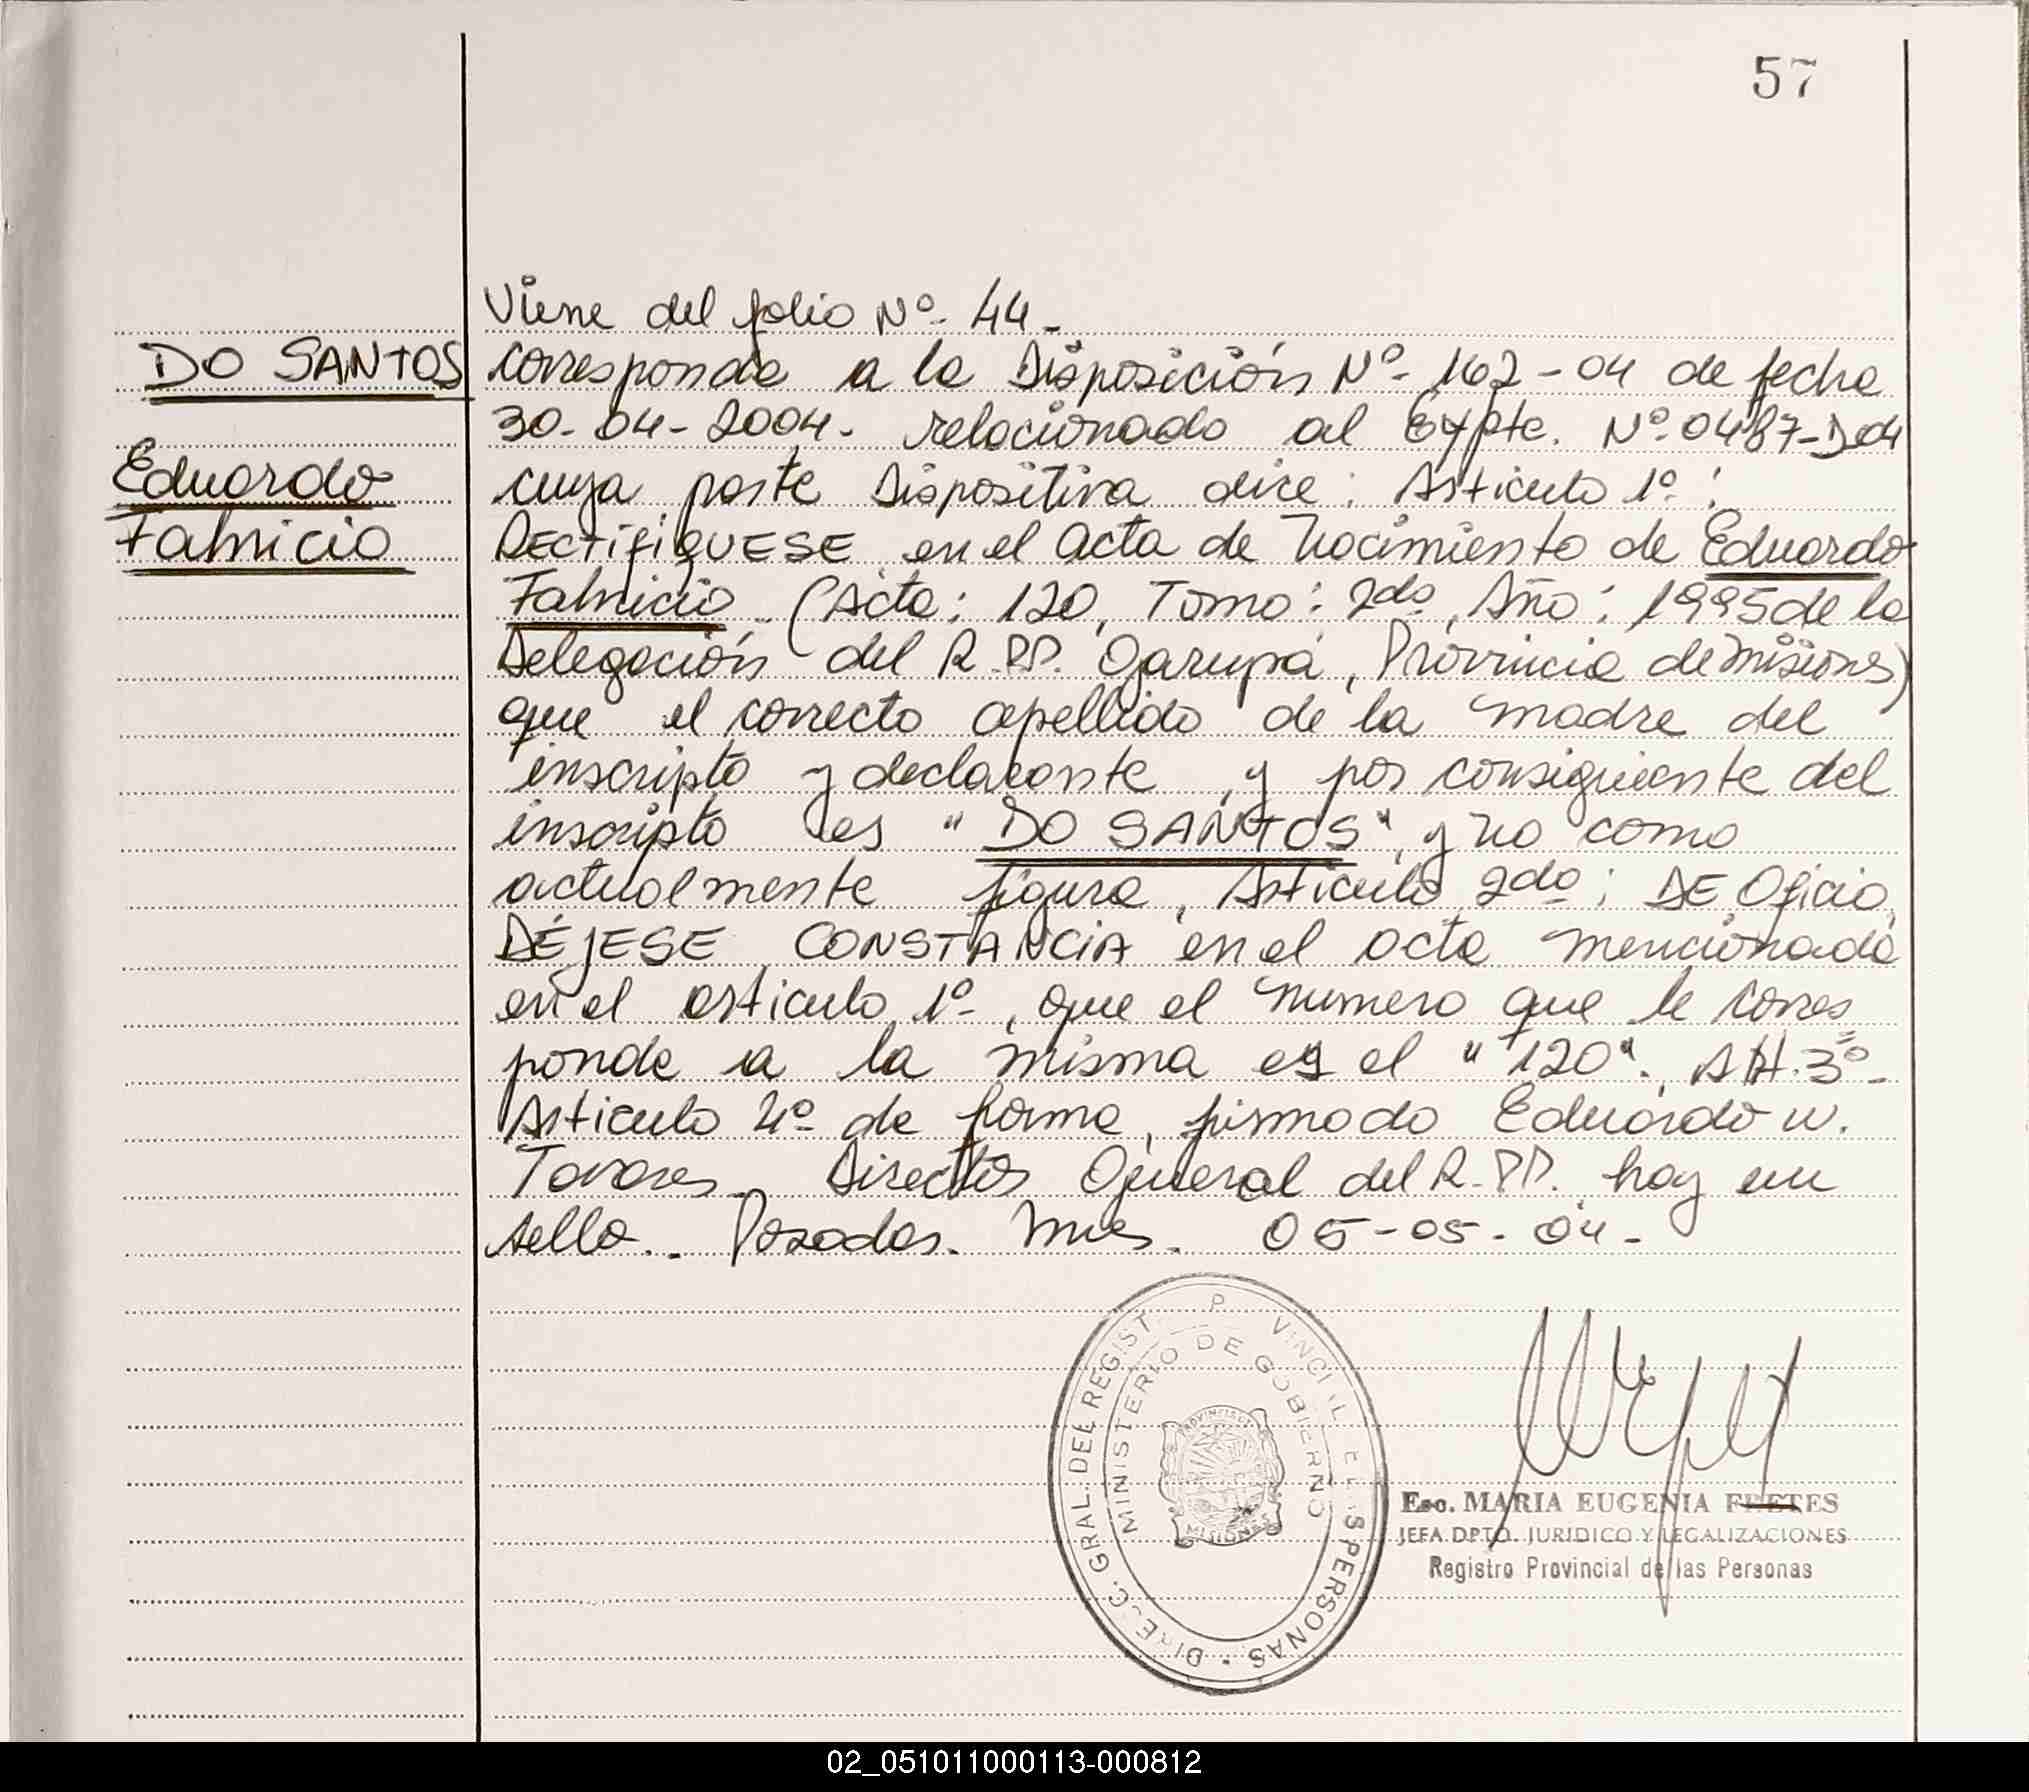 57
Viene del folio Nº 44-
DO SANTOS
corresponde a la Disposición Nº 162-04 de fecha
30-04-2004. relacionado al Expte. Nº 0487-D-04
Eduardo
cuya parte Dispositiva dice: Articulo 1º:
Fabricio
RECTIFIQUESE en el acta de Nacimiento de Eduardo
Fabricio (Acta: 120, Tomo: 2do, Año: 1995 de la
Delegación del R.PP. Garupá, Provincia de Misiones)
que el correcto apellido de la madre del
inscripto y declarante, y por consiguiente del
inscripto es "DO SANTOS", y no como
actualmente figura, Articulo 2do: DE Oficio,
DÉJESE CONSTANCIA en el acta mencionada
en el articulo 1º, que el numero que le corres
ponde a la misma es el "120". Art. 3º-
Articulo 4º de forma, firmado Eduardo W.
Tavares Director General del R.PP. hay un
sello.. Posadas. Mnes. 05-05-04-
DIREC. GRAL. DEL REGIST P VINCI L E L S PERSONAS
MINISTERIO DE GOBIERNO
MISIONES
Esc. MARIA EUGENIA FRETES
JEFA DPTO. JURIDICO Y LEGALIZACIONES
Registro Provincial de las Personas
02_051011000113-000812